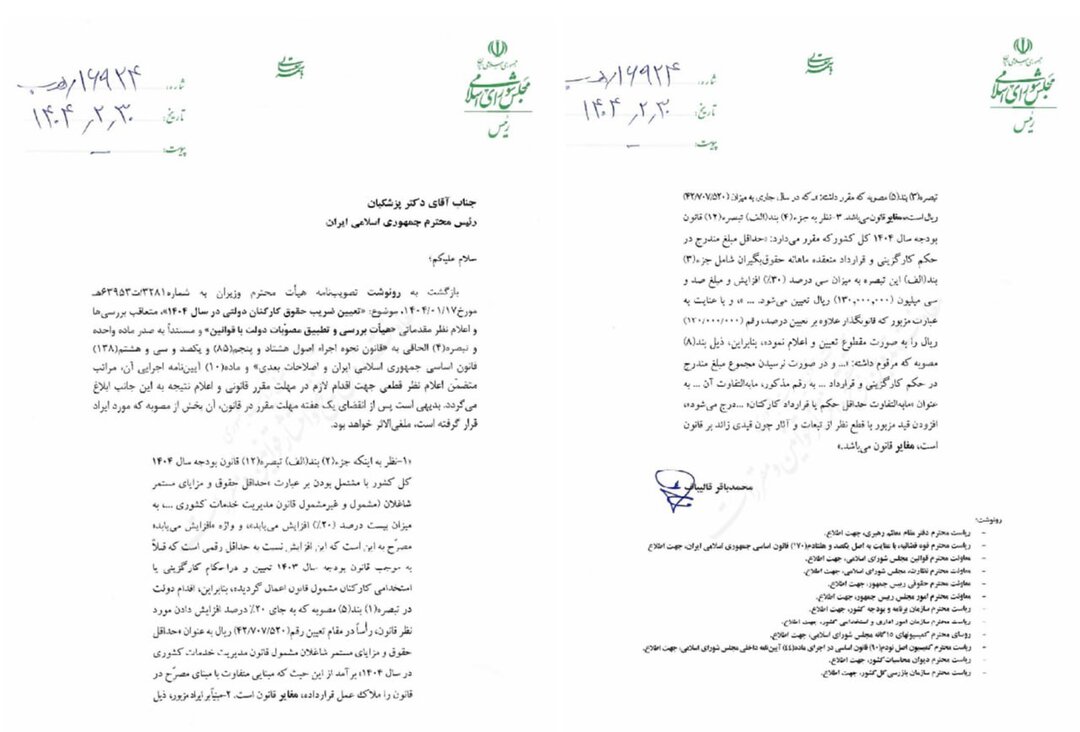 جمهوری اسلامی ایران
مجلس شورای اسلامی
رئیس
باسمه تعالی
شماره: ۱۶۹۲۴/هـ ب
تاریخ: ۱۴۰۴٫۲٫۳۰
پیوست: ـ
جناب آقای دکتر پزشکیان
رئیس محترم جمهوری اسلامی ایران
سلام علیکم؛
بازگشت به رونوشت تصویب‌نامه هیأت محترم وزیران به شماره ۳۲۸۱/ت۶۳۹۵۳هـ
مورخ ۱۴۰۴/۰۱/۱۷، موضوع: «تعیین ضریب حقوق کارکنان دولتی در سال ۱۴۰۴»، متعاقب بررسی‌ها
و اعلام نظر مقدماتی «هیأت بررسی و تطبیق مصوّبات دولت با قوانین» و مستنداً به صدر ماده واحده
و تبصره(۴) الحاقی به «قانون نحوه اجراء اصول هشتاد و پنجم(۸۵) و یکصد و سی و هشتم(۱۳۸)
قانون اساسی جمهوری اسلامی ایران و اصلاحات بعدی» و ماده(۱۰) آیین‌نامه اجرایی آن، مراتب
متضمّن اعلام نظر قطعی جهت اقدام لازم در مهلت مقرر قانونی و اعلام نتیجه به این جانب ابلاغ
می‌گردد. بدیهی است پس از انقضای یک هفته مهلت مقرر در قانون، آن بخش از مصوبه که مورد ایراد
قرار گرفته است، ملغی‌الاثر خواهد بود.
«۱-نظر به اینکه جزء(۲) بند(الف) تبصره(۱۲) قانون بودجه سال ۱۴۰۴
کل کشور با مشتمل بودن بر عبارت «حداقل حقوق و مزایای مستمر
شاغلان (مشمول و غیرمشمول قانون مدیریت خدمات کشوری ...، به
میزان بیست درصد (۲۰٪) افزایش می‌یابد»، و واژه «افزایش می‌یابد»
مصرّح به این است که این افزایش نسبت به حداقل رقمی است که قبلاً
به موجب قانون بودجه سال ۱۴۰۳ تعیین و در احکام کارگزینی یا
استخدامی کارکنان مشمول قانون اعمال گردیده»، بنابراین، اقدام دولت
در تبصره(۱) بند(۵) مصوبه که به جای ۲۰٪ درصد افزایش دادن مورد
نظر قانون، رأساً در مقام تعیین رقم(۴۲/۷۰۷/۵۲۰) ریال به عنوان «حداقل
حقوق و مزایای مستمر شاغلان مشمول قانون مدیریت خدمات کشوری
در سال ۱۴۰۴» برآمد از این حیث که مبنایی متفاوت با مبنای مصرّح در
قانون را ملاک عمل قرارداده، مغایر قانون است. ۲-مبنیاً بر ایراد مزبور، ذیل
جمهوری اسلامی ایران
مجلس شورای اسلامی
رئیس
باسمه تعالی
شماره: ۱۶۹۲۴/هـ ب
تاریخ: ۱۴۰۴٫۲٫۳۰
پیوست: ـ
تبصره(۳) بند(۵) مصوبه که مقرر داشته: «ـ که در سال جاری به میزان (۴۲/۷۰۷/۵۲۰)
ریال است»، مغایر قانون می‌باشد. ۳- نظر به جزء(۴) بند(الف) تبصره(۱۲) قانون
بودجه سال ۱۴۰۴ کل کشور که مقرر می‌دارد: «حداقل مبلغ مندرج در
حکم کارگزینی و قرارداد منعقده ماهانه حقوق‌بگیران شامل جزء(۳)
بند(الف) این تبصره به میزان سی درصد (۳۰٪) افزایش و مبلغ صد و
سی میلیون (۱۳۰,۰۰۰,۰۰۰) ریال تعیین می‌شود. ... »، و با عنایت به
عبارت مزبور که قانونگذار علاوه بر تعیین درصد، رقم (۱۳۰/۰۰۰/۰۰۰)
ریال را به صورت مقطوع تعیین و اعلام نموده»، بنابراین، ذیل بند(۸)
مصوبه که مرقوم داشته: «... و در صورت نرسیدن مجموع مبلغ مندرج
در حکم کارگزینی و قرارداد ... به رقم مذکور، مابه‌التفاوت آن ... به
عنوان «مابه‌التفاوت حداقل حکم یا قرارداد کارکنان» ... درج می‌شود»،
افزودن قید مزبور با قطع نظر از تبعات و آثار چون قیدی زائد بر قانون
است، مغایر قانون می‌باشد.»
محمدباقر قالیباف
رونوشت:
- ریاست محترم دفتر مقام معظم رهبری، جهت اطلاع.
- ریاست محترم قوه قضائیه، با عنایت به اصل یکصد و هفتادم(۱۷۰) قانون اساسی جمهوری اسلامی ایران، جهت اطلاع.
- معاونت محترم قوانین مجلس شورای اسلامی، جهت اطلاع.
- معاونت محترم نظارت، مجلس شورای اسلامی، جهت اطلاع.
- معاونت محترم حقوقی رییس جمهور، جهت اطلاع.
- معاونت محترم امور مجلس رییس جمهور، جهت اطلاع.
- ریاست محترم سازمان برنامه و بودجه کشور، جهت اطلاع.
- ریاست محترم سازمان امور اداری و استخدامی کشور، جهت اطلاع.
- روسای محترم کمیسیونهای ۱۵ گانه مجلس شورای اسلامی، جهت اطلاع.
- ریاست محترم کمیسیون اصل نودم(۹۰) قانون اساسی در اجرای ماده(۴۴) آیین‌نامه داخلی مجلس شورای اسلامی، جهت اطلاع.
- ریاست محترم دیوان محاسبات کشور، جهت اطلاع.
- ریاست محترم سازمان بازرسی کل کشور، جهت اطلاع.